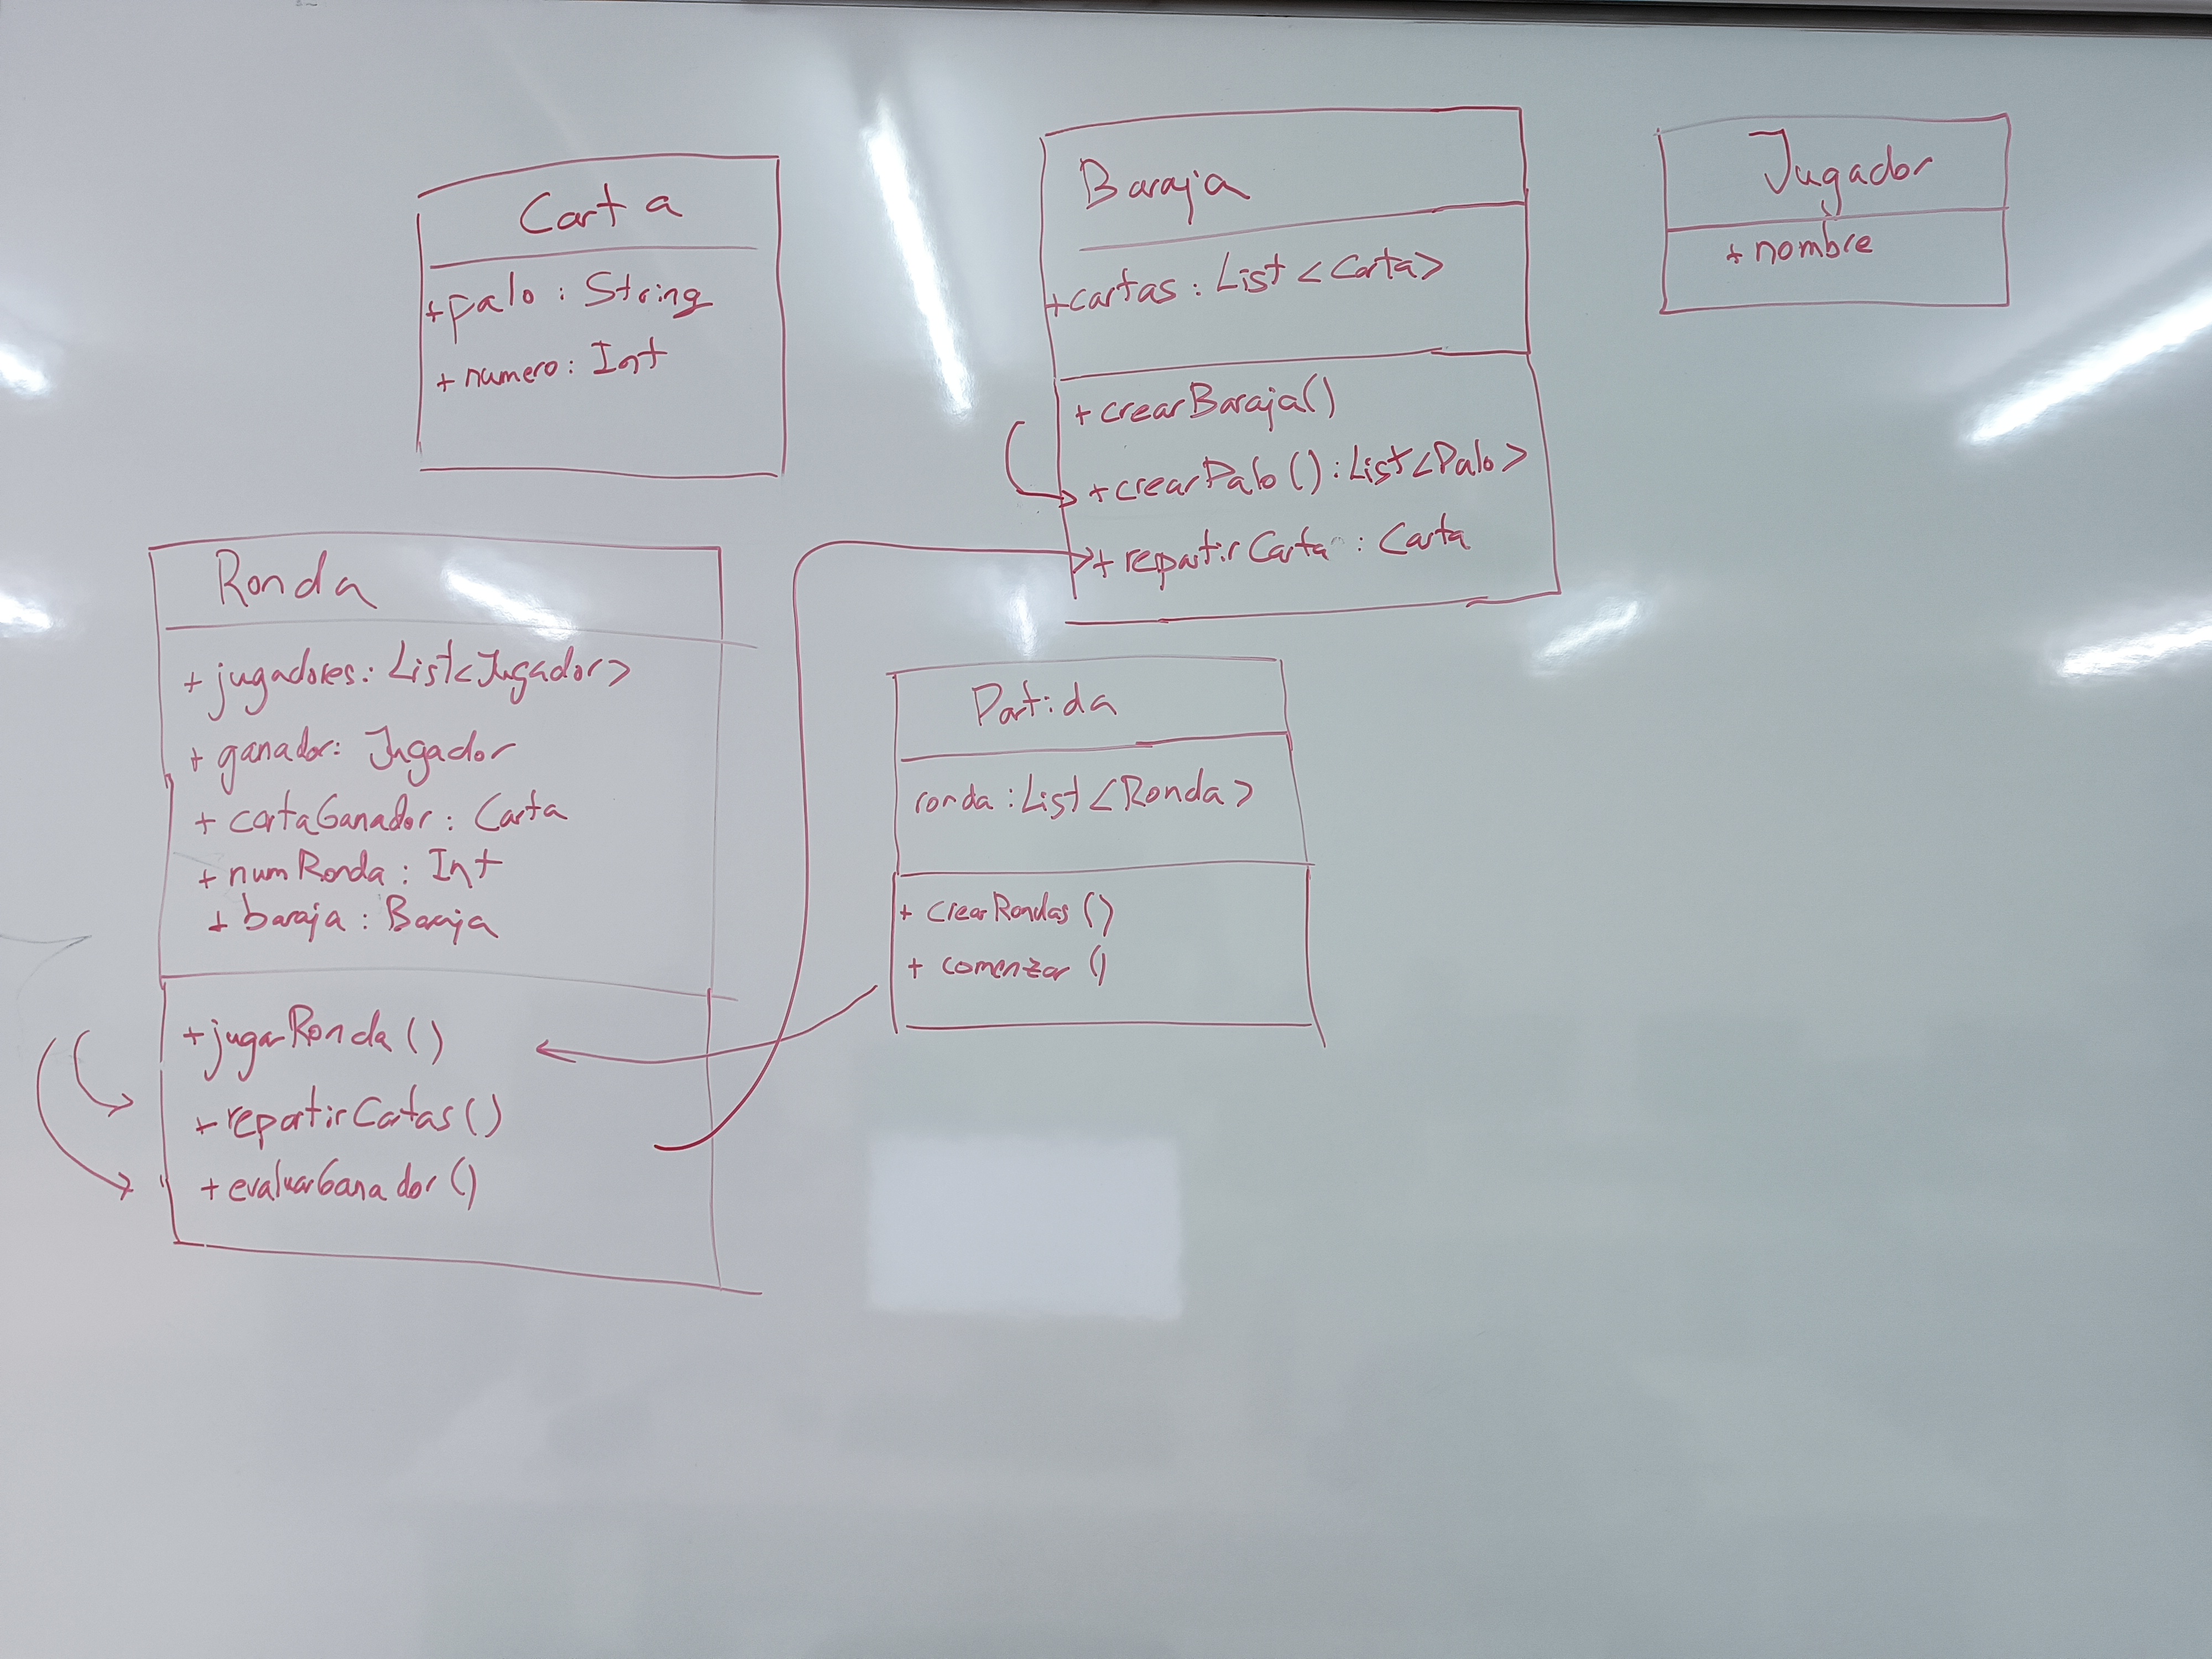 Carta
+palo : String
+ numero : Int
Baraja
+cartas : List <Carta>
+ crearBaraja()
+ crearPalo () : List<Palo>
+ repartir Carta : Carta
Jugador
+ nombre
Ronda
+ jugadores: List<Jugador>
+ ganador: Jugador
+ cartaGanador : Carta
+ numRonda : Int
+ baraja : Baraja
+jugarRonda ()
+repartirCartas()
+ evaluarGanador ()
Partida
ronda : List <Ronda>
+ crearRondas ()
+ comenzar ()